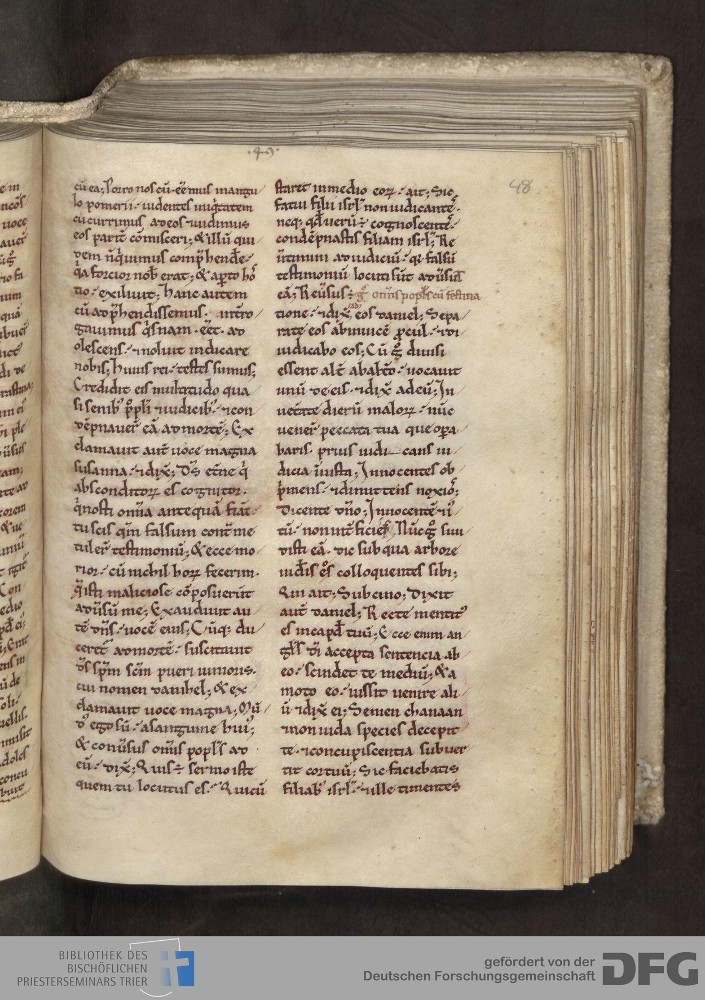 48
cū ea; Porro nos cū eēmus in angu
lo pomerii uidentes iniq̇tatem
cucurrimus ad eos uidimus
eos partē cōmisceri; & illū qui
dem nequiuimus comp̄hendē
q̇a forcior nob̄ erat; & apto ho
tio exiliuit; hanc autem
cū app̄hendissemus interro
gauimus q̇snam eēt ad
olescens & noluit indicare
nobis; huius rei testes sumus;
Credidit eis multitudo qua
si senib; ppli & iudicib; & con
dēpnauer̄ eā ad mortē; Ex
clamauit aut̄ uoce magna
susanna & dix̄; Ds̄ et̄ne q̇
absconditoꝝ es cognitor
q̇ nosti om̄ia antequā fiāt
tu scis qm̄ falsum cont̄ me
tuler̄ testimoniū; & ecce mo
rior cū nichil hoꝝ fecerim
q̇ isti maliciose cōposuerūt
aduersū me; Exaudiuit au
tē dn̄s uocē eius; Cūq; du
ceret̄ ad mortē suscitauit
ds̄ sp̄m sc̄m pueri iunioris
cui nomen danihel; & ex
clamauit uoce magna; Mū
d' ego sū a sanguine hui';
& conuersus om̄is popl̄s ad
eū dix̄; Quis ē sermo iste
quem tu locutus es; Qui cū
staret in medio eoꝝ ait; Sic
fatui filii isrl̄ non iudicantes
neq; qd̄ uerū ē cognoscentes
condēpnastis filiam isrl̄; Re
uertimini ad iudiciū q̇ falsū
testimoniū locuti sūt aduersū
eā; Reuersus ē g̊ om̄is popl̄s cū festina
tione & dix̄ ad eos daniel; Sepa
rate eos ab inuicē procul & di
iudicabo eos; Cū g̊ diuisi
essent alt̄ ab alt̄o uocauit
unū de eis & dix̄ ad eū; In
uet̄ate dierū maloꝝ nūc
uener̄ peccata tua que opa
baris prius iudicans iu
dicia iniusta; Innocentes op
p̄mens & dimittens noxios;
Dicente dn̄o; Innocentē & ius
tū non int̄ficies; Nūc g̊ si ui
disti eā dic sub qua arbore
uideris eos colloquentes sibi;
Qui ait; Sub cino; Dixit
aut̄ daniel; Recte mentit'
es in capd̄ tuū; Ecce enim an
gl̄s dī accepta sentencia ab
eo scindet te mediū; & a
moto eo iussit uenire aliū
& dix̄ ei; Semen chanaan
& non iuda species decepit
te & concupiscentia subuer
tit cor tuū; Sic faciebatis
filiab; isrl̄ & ille timentes
BIBLIOTHEK DES
BISCHÖFLICHEN
PRIESTERSEMINARS TRIER
gefördert von der
Deutschen Forschungsgemeinschaft
DFG